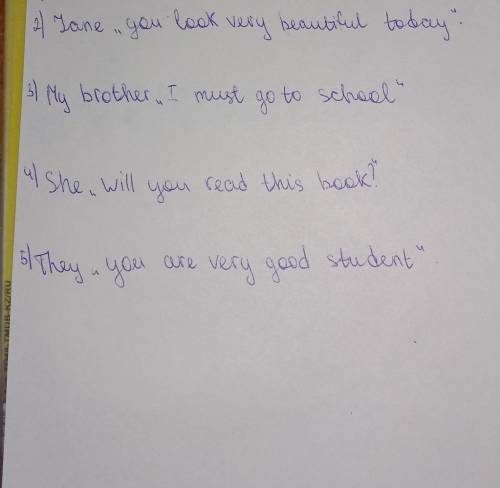 2) Jane „you look very beautiful today“.
3) My brother „I must go to school“
4) She „will you read this book?“
5) They „you are very good student“.